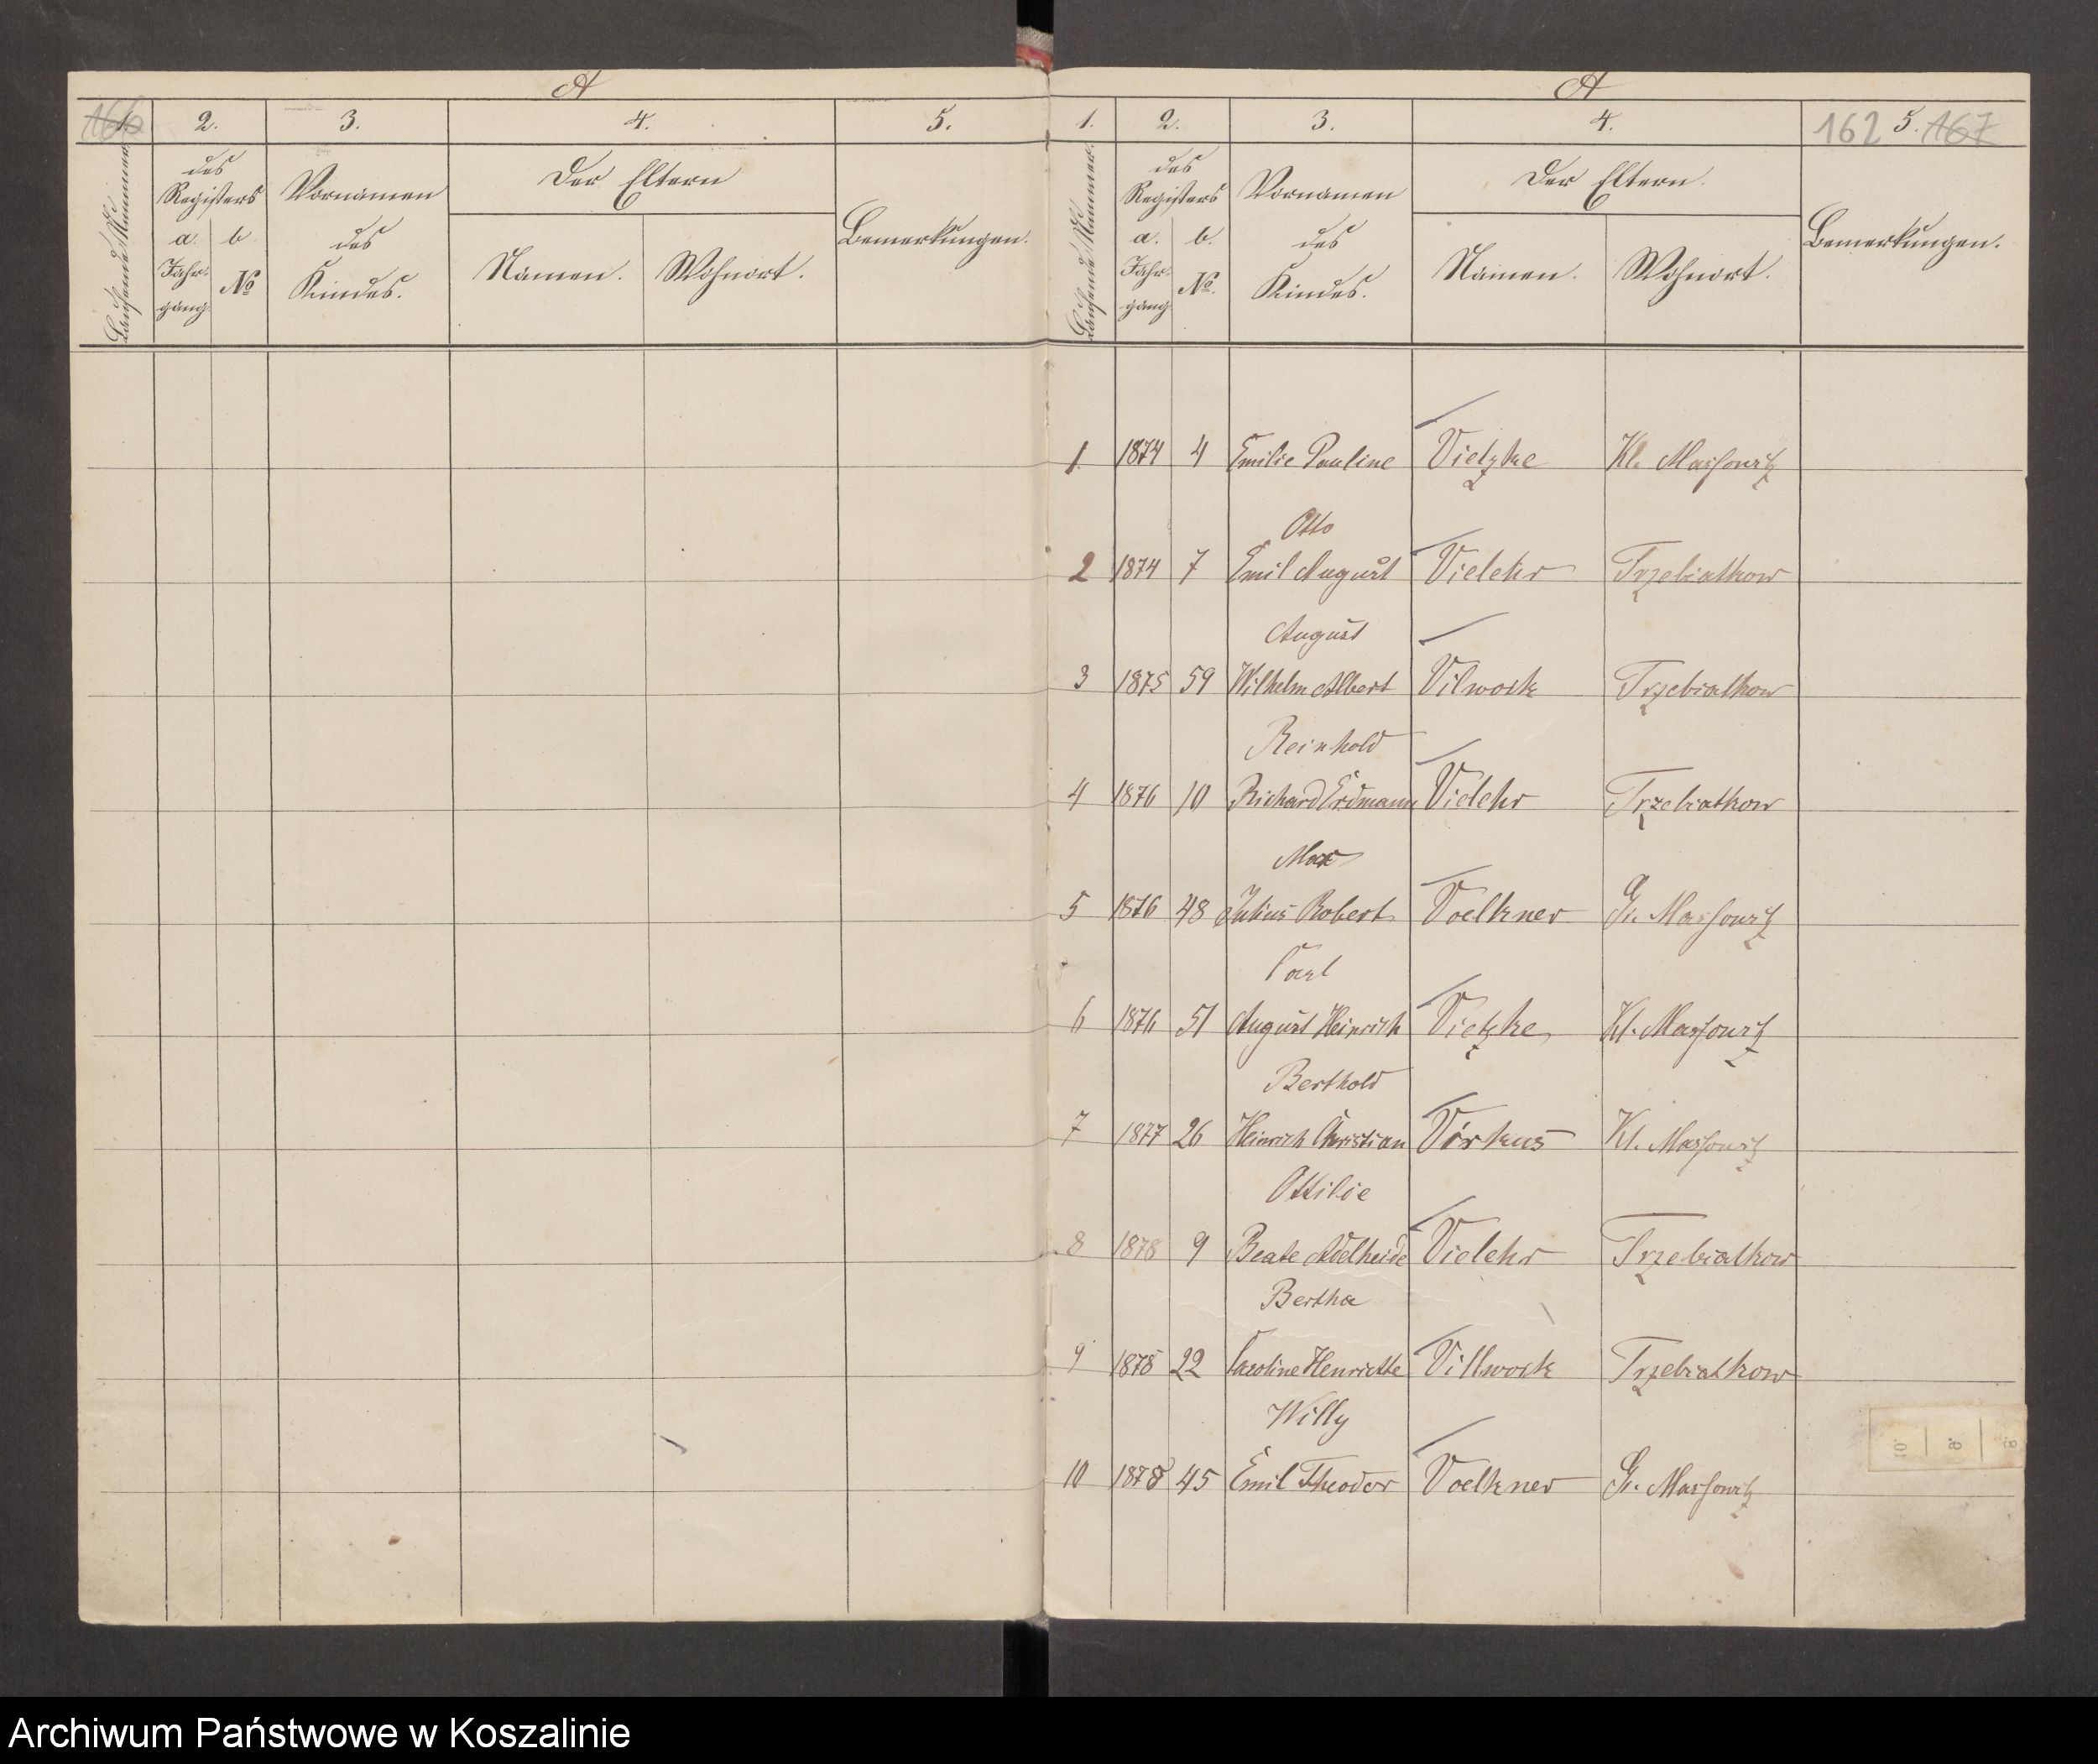 A
166
1. 2. 3. 4. 5.
Laufende Nummer.
des
Registers
a. b.
Jahr-
gang
No
Vornamen
des
Kindes.
Der Eltern
Namen. Wohnort.
Bemerkungen.
A
1. 2. 3. 4. 162 5. 167
Laufende Nummer.
des
Registers
a. b.
Jahr-
gang
No.
Vornamen
des
Kindes.
Der Eltern.
Namen. Wohnort.
Bemerkungen.
1. 1874 4 Emilie Pauline Vietzke Kl. Massowitz
Otto
2 1874 7 Emil August Vielehr Trzebiatkow
August
3 1875 59 Wilhelm Albert Vilwock Trzebiatkow
Reinhold
4 1876 10 Richard Erdmann Vielehr Trzebiatkow
Max
5 1876 48 Julius Robert Voelkner Gr. Massowitz
Carl
6 1876 51 August Heinrich Vietzke Kl. Massowitz
Berthold
7 1877 26 Heinrich Christian Virkus Kl. Massowitz
Ottilie
8 1878 9 Beate Adelheide Vielehr Trzebiatkow
Bertha
9 1878 22 Caroline Henriette Villwock Trzebiatkow
Willy
10 1878 45 Emil Theodor Voelkner Gr. Massowitz
10. 9. 8
Archiwum Państwowe w Koszalinie